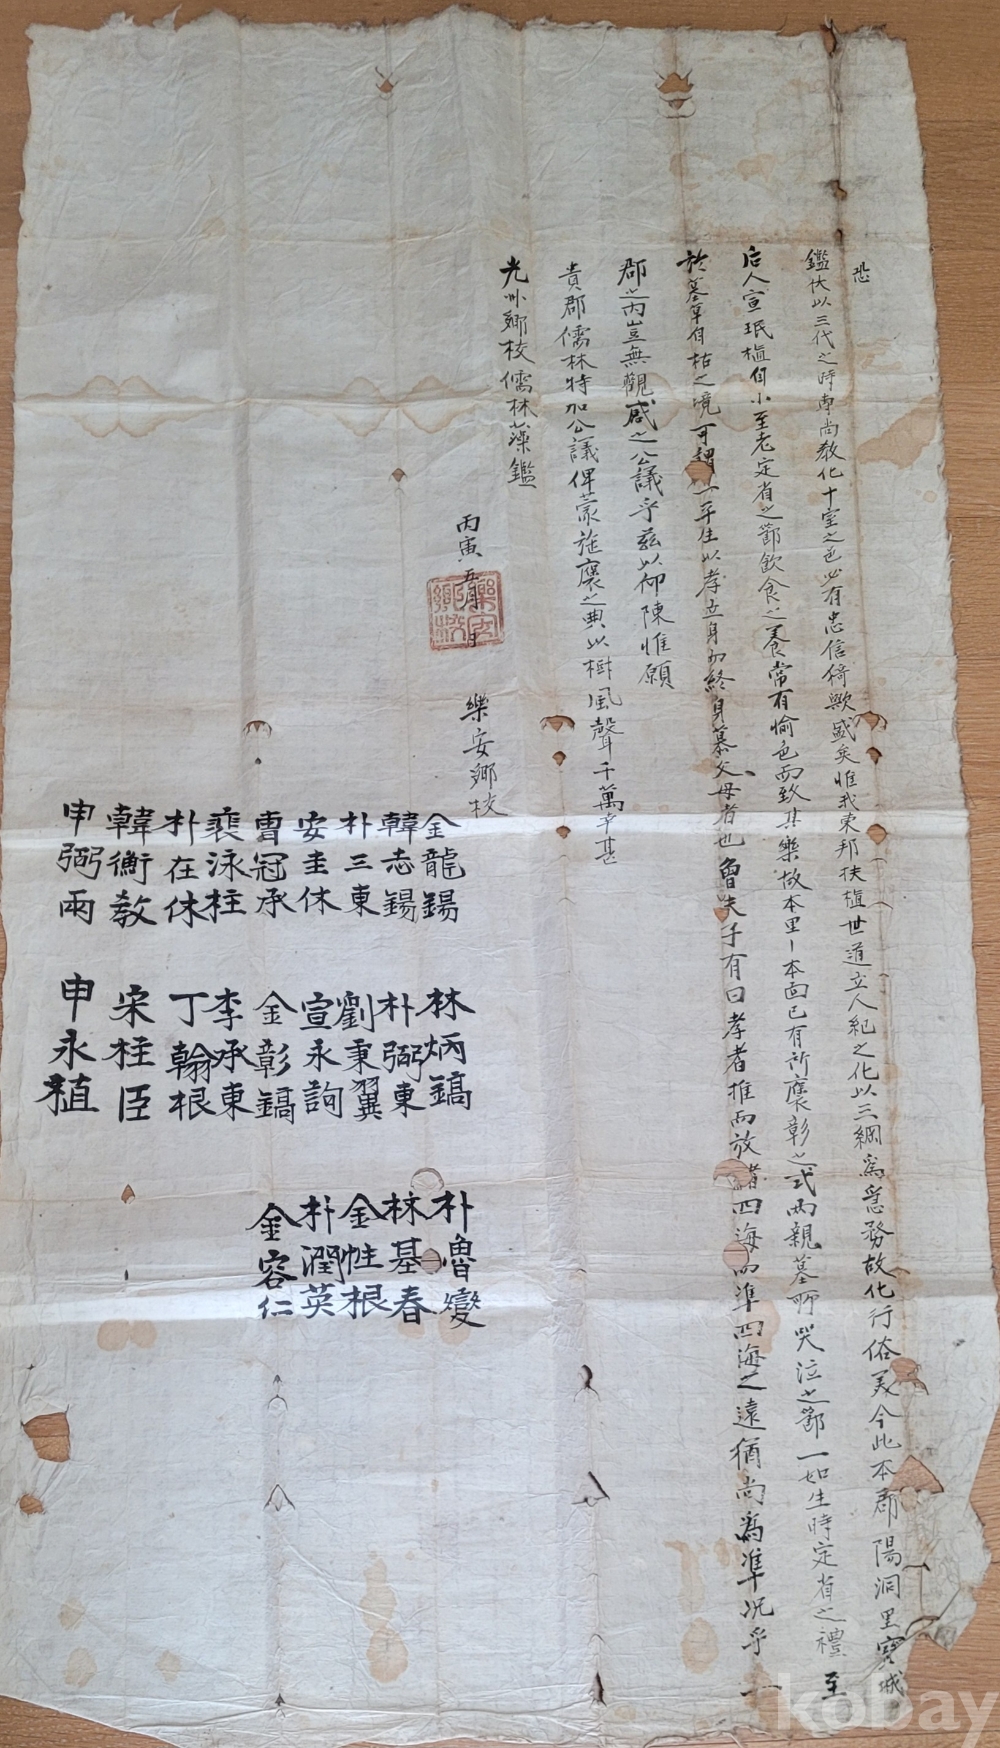 恐
鑑伏以三代之時専尚教化十室之邑必有忠信猗歟盛矣惟我東邦扶植世道立人紀之化以三綱爲急務故化行俗美今此本郡陽洞里寶城
后人宣珉植自小至老定省之節飮食之養常有愉色而致其樂故本里本面已有所褒彰之式兩親墓所哭泣之節一如生時定省之禮至
於墓草自枯之境可謂一平生以孝立身而終身慕父母者也魯夫子有曰孝者推而放諸四海而準四海之遠猶尚爲準况乎一
郡之内豈無觀感之公議乎玆以仰陳惟願
貴郡儒林特加公議俾蒙旌褒之典以樹風聲千萬幸甚
光州鄕校儒林藻鑑
丙寅五月 日
樂安鄕校
金龍錫
韓志錫
朴三東
安圭休
曺冠承
裵泳柱
朴在休
韓衡敎
申弼雨
林炳鎬
朴弼東
劉秉翼
宣永詢
金彰鎬
李承東
丁翰根
宋柱臣
申永植
朴魯燮
林基春
金性根
朴潤英
金容仁
樂安鄕校
kobay